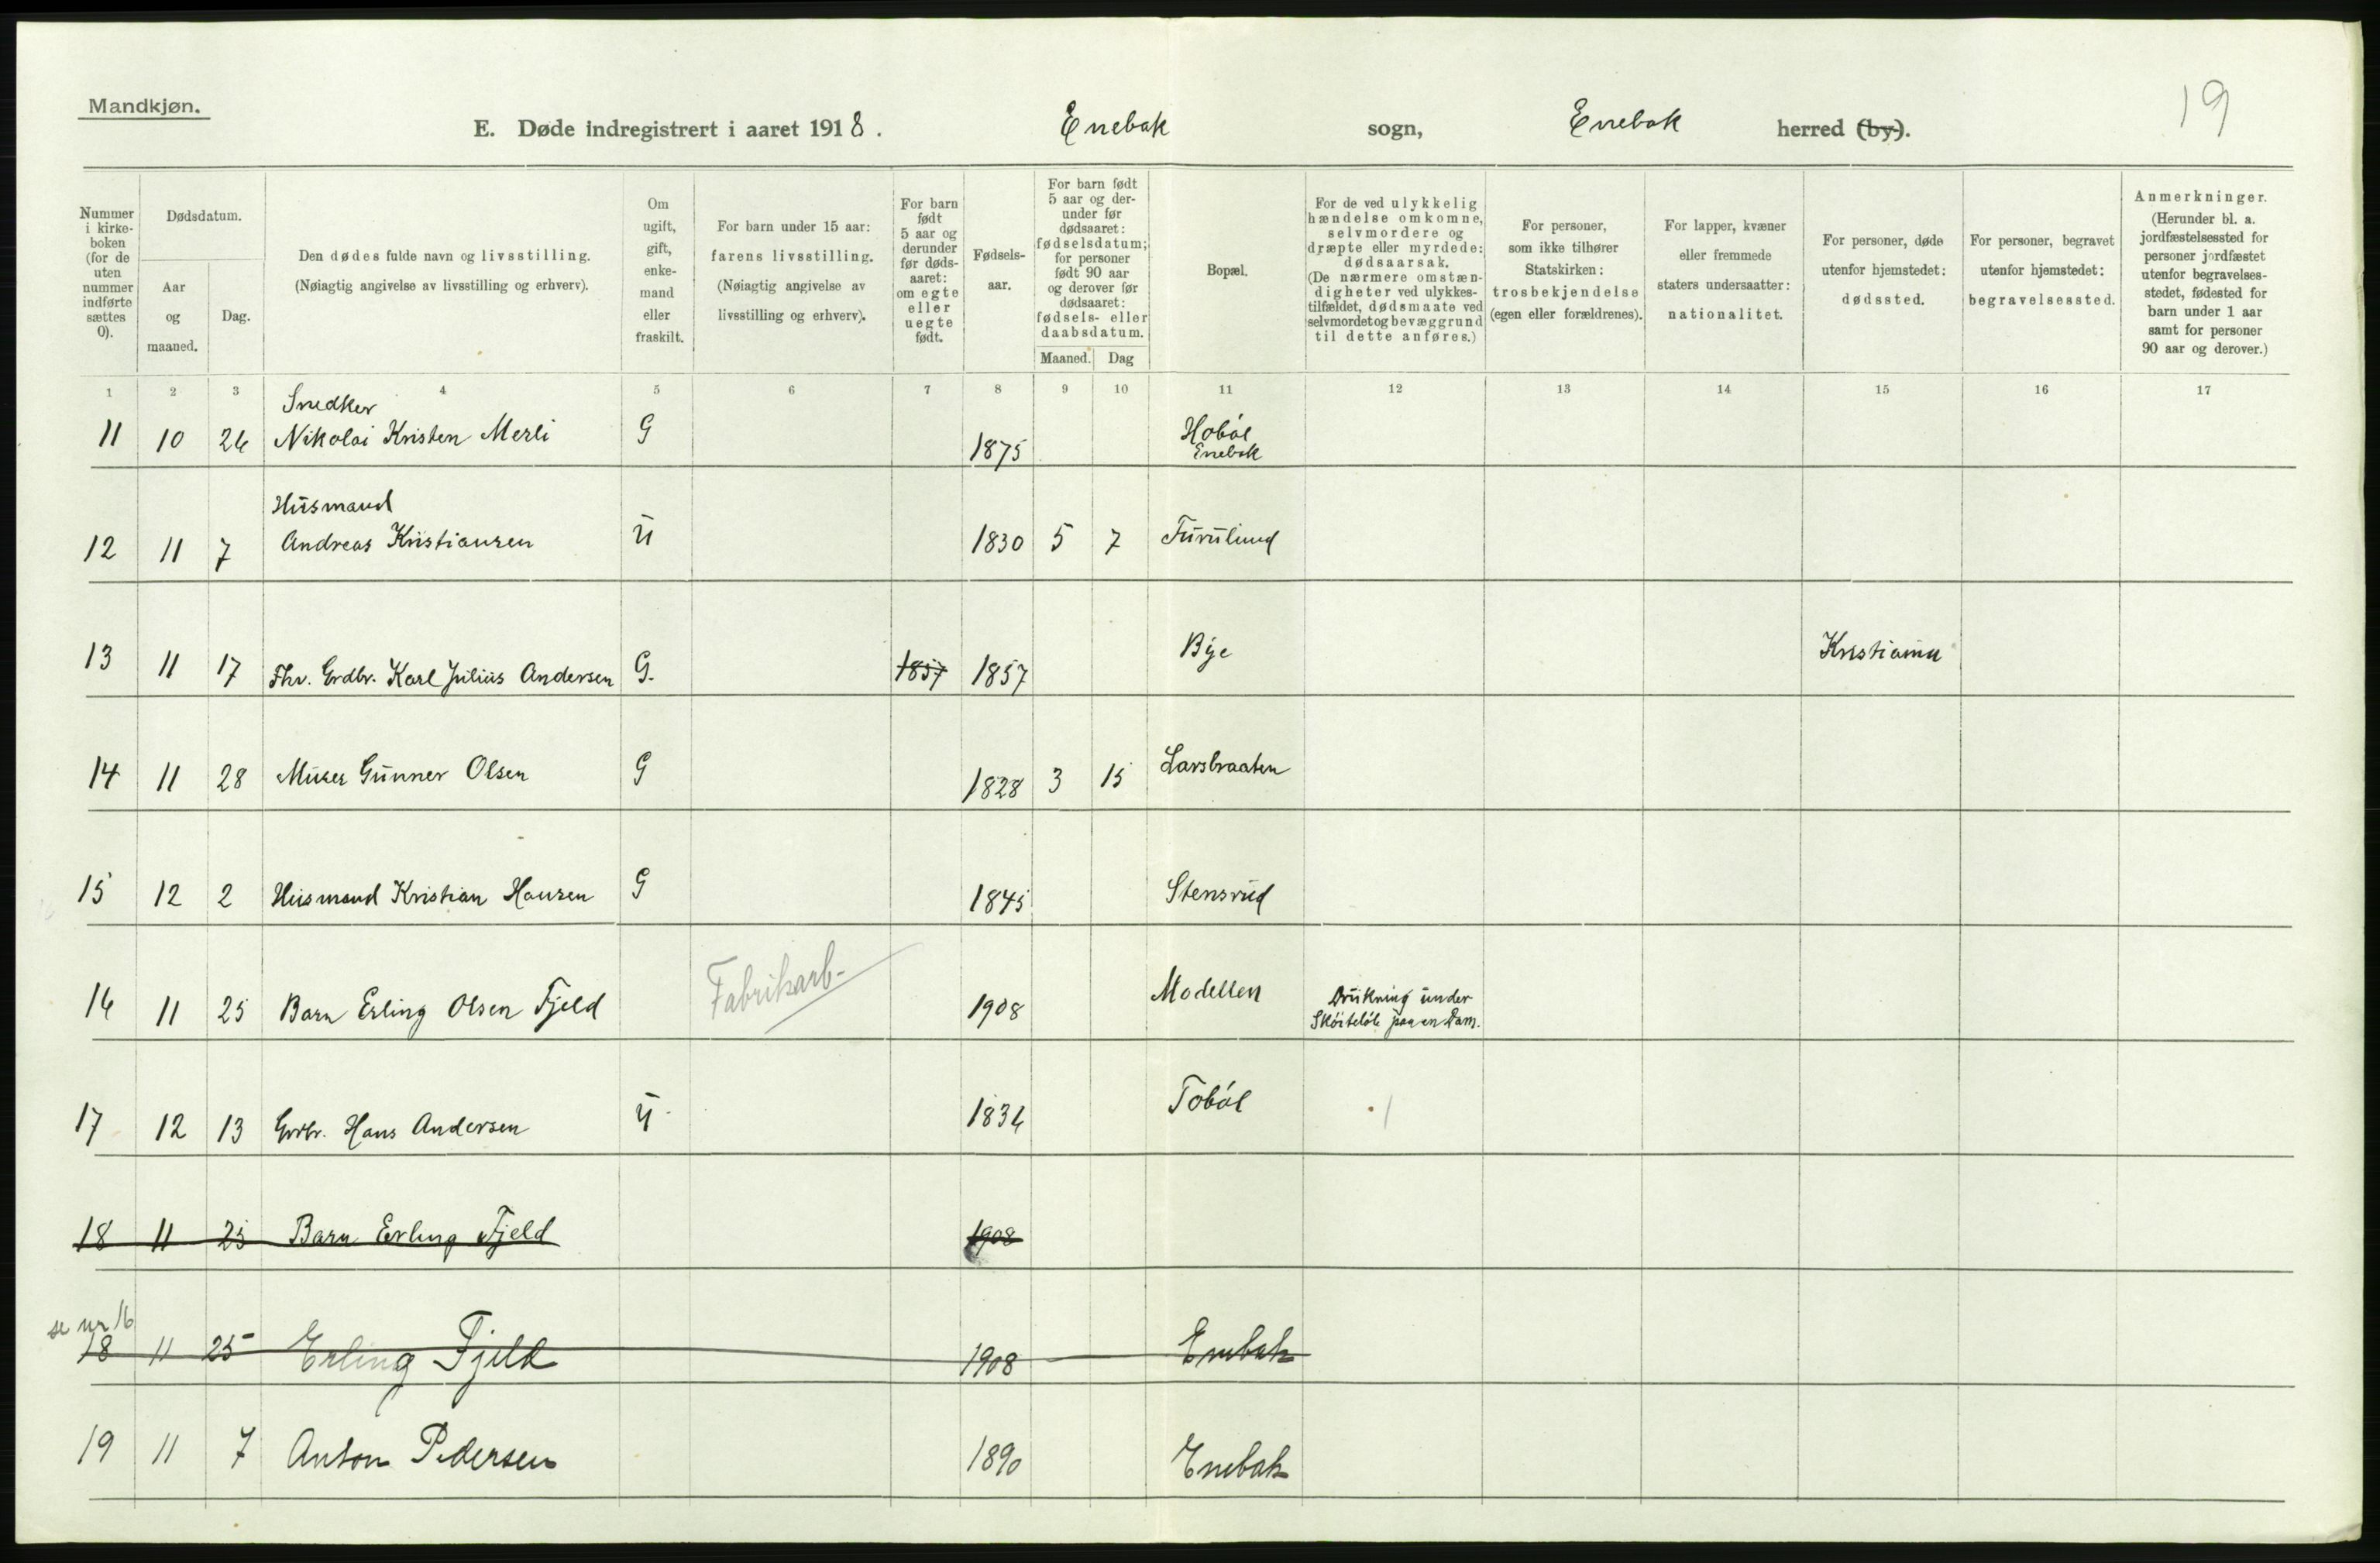 Mandkjøn.
19
E. Døde indregistrert i aaret 1918. Enebak sogn, Enebak herred (by).
Nummer i kirke-boken (for de uten nummer indførte sættes 0).
Dødsdatum.
Aar og maaned.
Dag.
Den dødes fulde navn og livsstilling.
(Nøiagtig angivelse av livsstilling og erhverv).
Om ugift, gift, enke-mand eller fraskilt.
For barn under 15 aar: farens livsstilling.
(Nøiagtig angivelse av livsstilling og erhverv).
For barn født 5 aar og derunder før døds-aaret: om egte eller uegte født.
Fødsels-aar.
For barn født 5 aar og der-under før dødsaaret: fødselsdatum; for personer født 90 aar og derover før dødsaaret: fødsels- eller daabsdatum.
Maaned. Dag
Bopæl.
For de ved ulykkelig hændelse omkomne, selvmordere og dræpte eller myrdede: dødsaarsak.
(De nærmere omstæn-digheter ved ulykkes-tilfældet, dødsmaate ved selvmordet og bevæggrund til dette anføres.)
For personer, som ikke tilhører Statskirken: trosbekjendelse (egen eller forældrenes).
For lapper, kvæner eller fremmede staters undersaatter: nationalitet.
For personer, døde utenfor hjemstedet: dødssted.
For personer, begravet utenfor hjemstedet: begravelsessted.
Anmerkninger.
(Herunder bl. a. jordfæstelsessted for personer jordfæstet utenfor begravelses-stedet, fødested for barn under 1 aar samt for personer 90 aar og derover.)
1 2 3 4 5 6 7 8 9 10 11 12 13 14 15 16 17
Snedker
11 10 26 Nikolai Kristen Merli G 1875 Hobøl
Enebak
Husmand
12 11 7 Andreas Kristiansen U 1830 5 7 Furulund
13 11 17 Fhv. Grdbr. Karl Julius Andersen G. 1857 1857 Bye Kristiania
14 11 28 Murer Gunner Olsen G 1828 3 15 Larsbraaten
15 12 2 Husmand Kristian Hansen G 1845 Stensrud
16 11 25 Barn Erling Olsen Fjeld Fabrikarb- 1908 Modellen Drukning under
Skøiteløb paa en Dam.
17 12 13 Grbr. Hans Andersen U 1836 Tobøl
18 11 25 Barn Erling Fjeld 1908
se nr 16
18 11 25 Erling Fjeld 1908 Enebak
19 11 7 Anton Pedersen 1890 Enebak